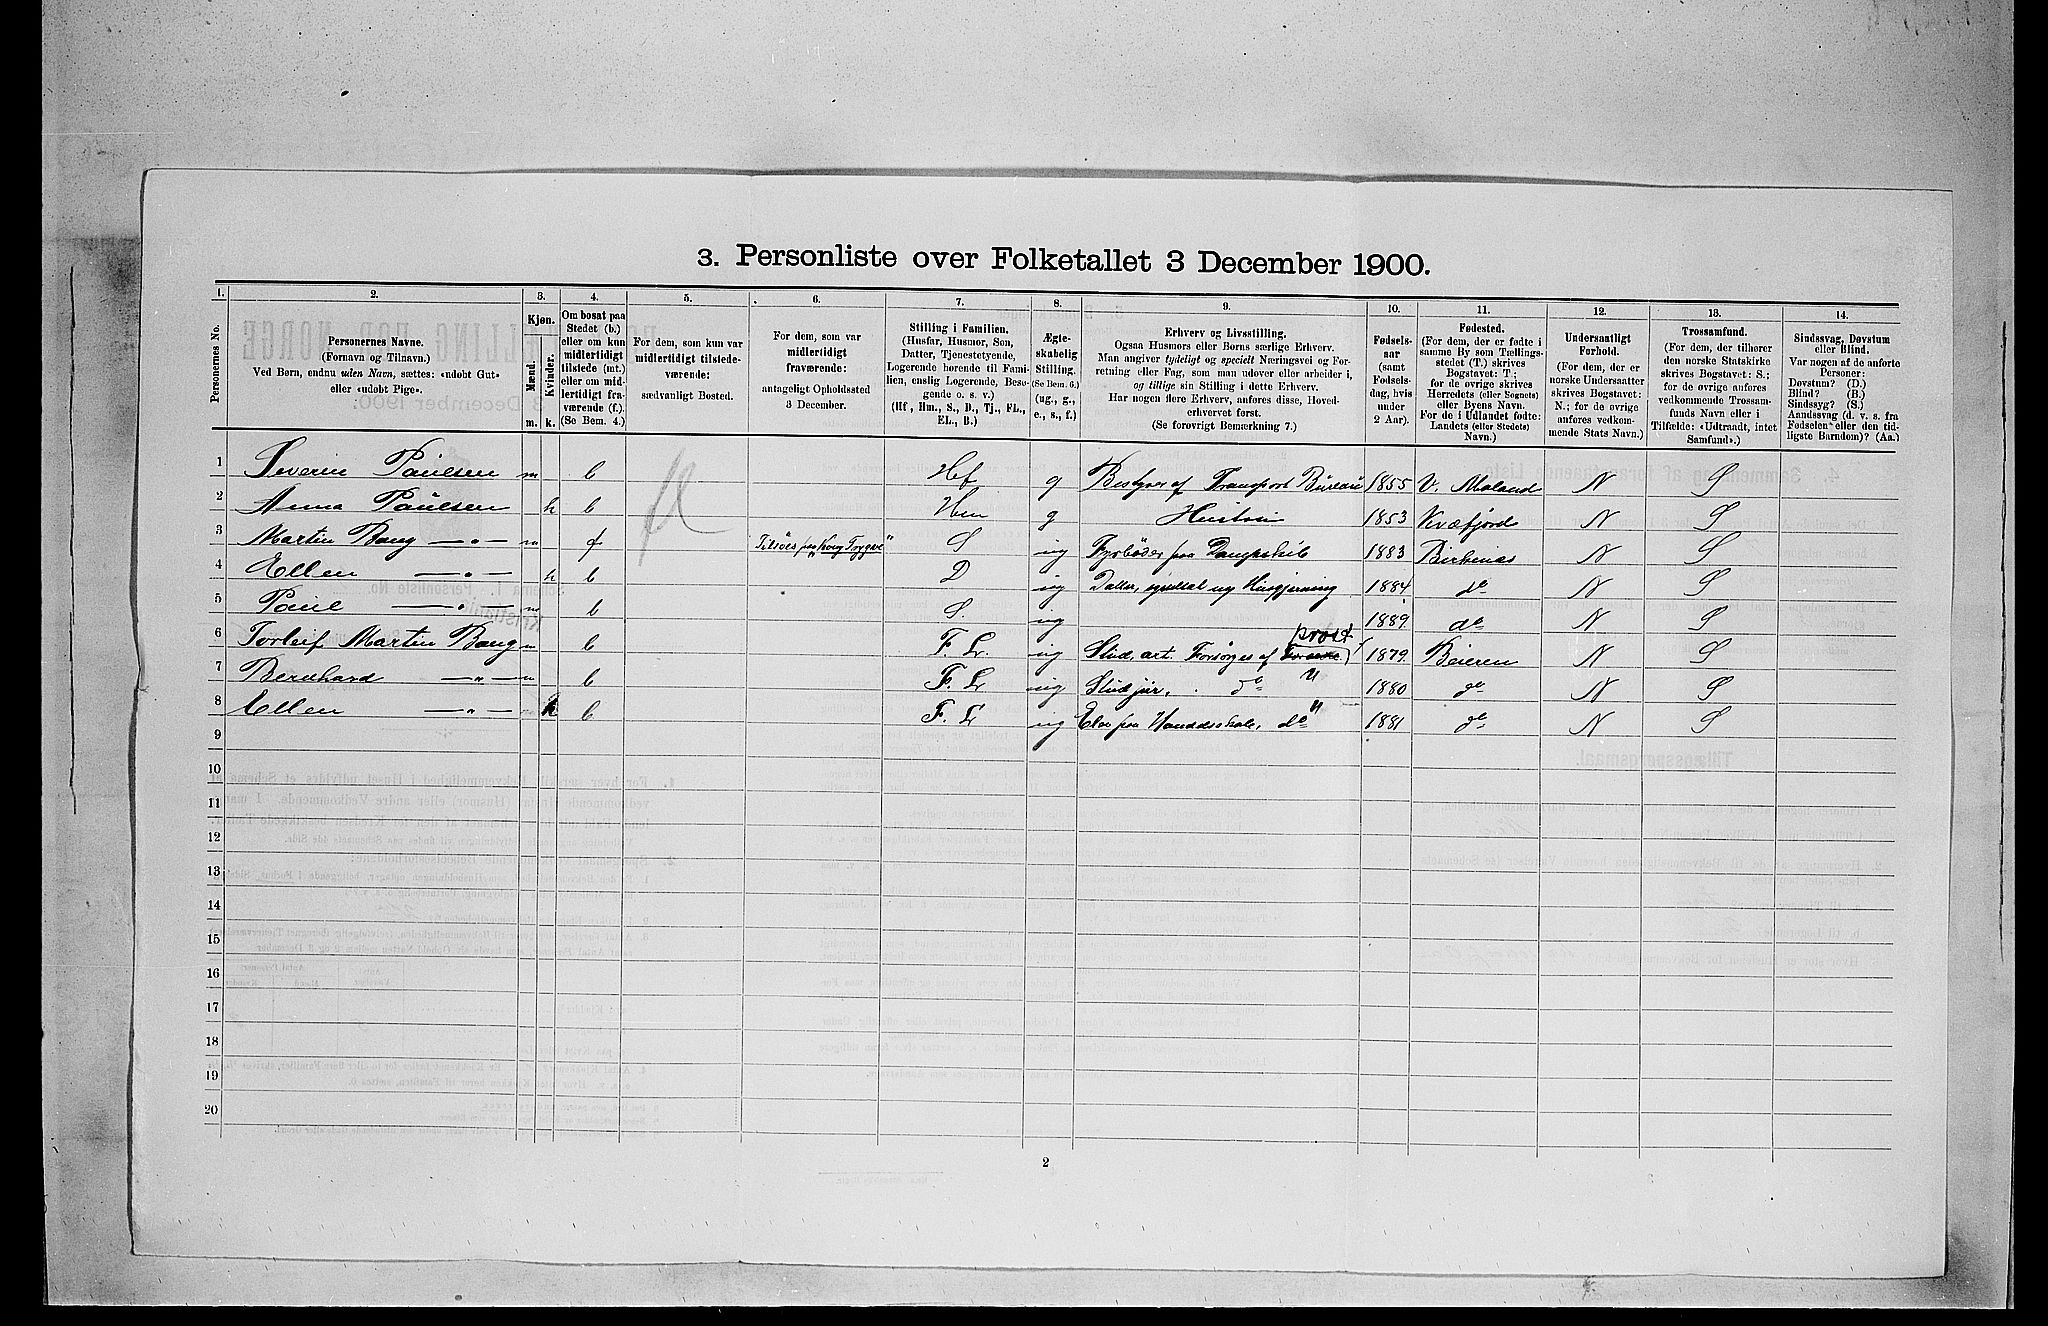 3. Personliste over Folketallet 3 December 1900.
1. 2. 3. 4. 5. 6. 7. 8. 9. 10. 11. 12. 13. 14.
Personernes No.
Personernes Navne.
(Fornavn og Tilnavn.)
Ved Børn, endnu uden Navn, sættes: «udobt Gut»
eller «udobt Pige».
Kjøn.
Mænd.
Kvinder.
m. k.
Om bosat paa
Stedet (b.)
eller om kun
midlertidigt
tilstede (mt.)
eller om mid-
lertidigt fra-
værende (f.)
(Se Bem. 4.)
For dem, som kun var
midlertidigt tilstede-
værende:
sædvanligt Bosted.
For dem, som var
midlertidigt
fraværende:
antageligt Opholdssted
3 December.
Stilling i Familien.
(Husfar, Husmor, Søn,
Datter, Tjenestetyende,
Logerende hørende til Fami-
lien, enslig Logerende, Besø-
gende o. s. v.)
(Hf, Hm., S., D., Tj., FL.,
EL., B.)
Ægte-
skabelig
Stilling.
(Se Bem. 6.)
(ug., g.,
e., s., f.)
Erhverv og Livsstilling.
Ogsaa Husmors eller Børns særlige Erhverv.
Man angiver tydeligt og specielt Næringsvei og For-
retning eller Fag, som man udover eller arbeider i,
og tillige sin Stilling i dette Erhverv.
Har nogen flere Erhverv, anføres disse, Hoved-
erhvervet først.
(Se forøvrigt Bemærkning 7.)
Fødsels-
aar
(samt
Fødsels-
dag, hvis
under
2 Aar).
Fødested.
(For dem, der er fødte i
samme By som Tællings-
stedet (T.) skrives
Bogstavet: T.;
for de øvrige skrives
Herredets (eller Sognets)
eller Byens Navn.
For de i Udlandet fødte:
Landets (eller Stedets)
Navn.)
Undersaatligt
Forhold.
(For dem, der er
norske Undersaatter
skrives Bogstavet:
N.; for de øvrige
anføres vedkom-
mende Stats Navn.)
Trossamfund.
(For dem, der tilhører
den norske Statskirke
skrives Bogstavet: S.;
for de øvrige anføres
vedkommende Trossam-
funds Navn eller i
Tilfælde: «Udtraadt, intet
Samfund».)
Sindssvag, Døvstum
eller Blind.
Var nogen af de anførte
Personer:
Døvstum? (D.)
Blind? (B.)
Sindssyg? (S.)
Aandssvag (d. v. s. fra
Fødselen eller den tid-
ligste Barndom)? (Aa.)
1 Severin Paulsen m b Hf g Bestyrer af Transport Bureau 1855 V. Moland N S
2 Anna Paulsen k b Hm g Hustru 1853 Kvæfjord N S
3 Martin Bang —"— m f Tilsøes paa "Kong Trygve" S ug Fyrbøder paa Dampskib 1883 Birkenæs N S
4 Ellen —"— k b D ug Datter, sysselsat ug Husgjerning 1884 do N S
5 Paul —"— m b S. ug 1889 do N S
6 Torleif Martin Bang m b F. L. ug Stud. art. Forsørges af prost 1879 Beieren N S
7 Bernhard —"— m b F. L ug Stud jur. do " 1880 do N S
8 Ellen —"— k b F. L ug Elev paa Handelsskole, do " 1881 do N S
9
10
11
12
13
14
15
16
17
18
19
20
2